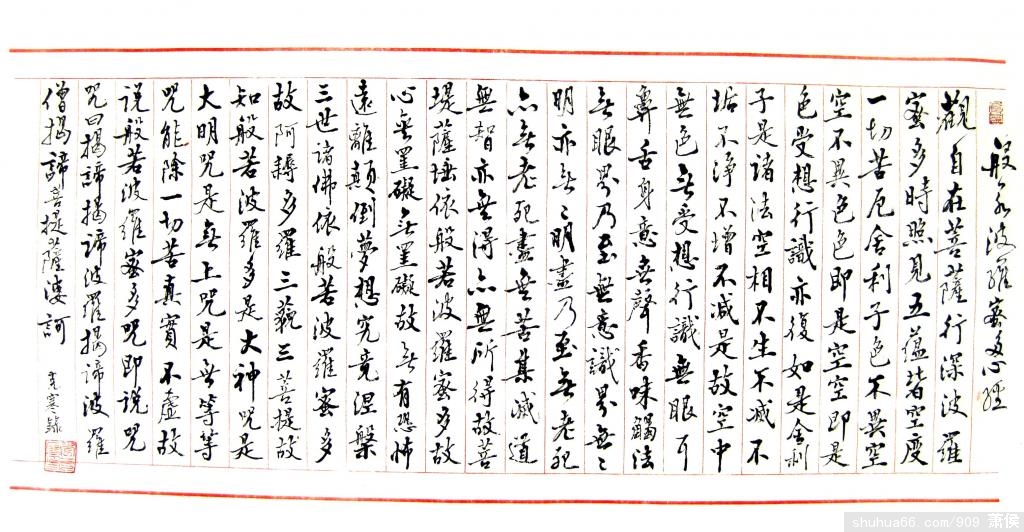 般若波羅蜜多心經
觀自在菩薩行深波羅
蜜多時照見五蘊皆空度
一切苦厄舍利子色不異空
空不異色色即是空空即是
色受想行識亦復如是舍利
子是諸法空相不生不滅不
垢不淨不增不減是故空中
無色无受想行識無眼耳
鼻舌身意無聲香味觸法
无眼界乃至無意識界無〻
明亦无〻明盡乃至无老死
亦无老死盡無苦集滅道
無智亦無得亦無所得故菩
堤薩埵依般若波羅蜜多故
心無罣礙无罣礙故无有恐怖
遠離顛倒夢想究竟涅槃
三世諸佛依般若波羅蜜多
故阿耨多羅三藐三菩提故
知般若波羅多是大神咒是
大明咒是无上咒是无等等
咒能除一切苦真實不虛故
說般若波羅蜜多咒即說咒
咒曰揭諦揭諦波羅揭諦波羅
僧揭諦菩提薩婆訶
寒錄
shuhua66.com/909 蕭侯